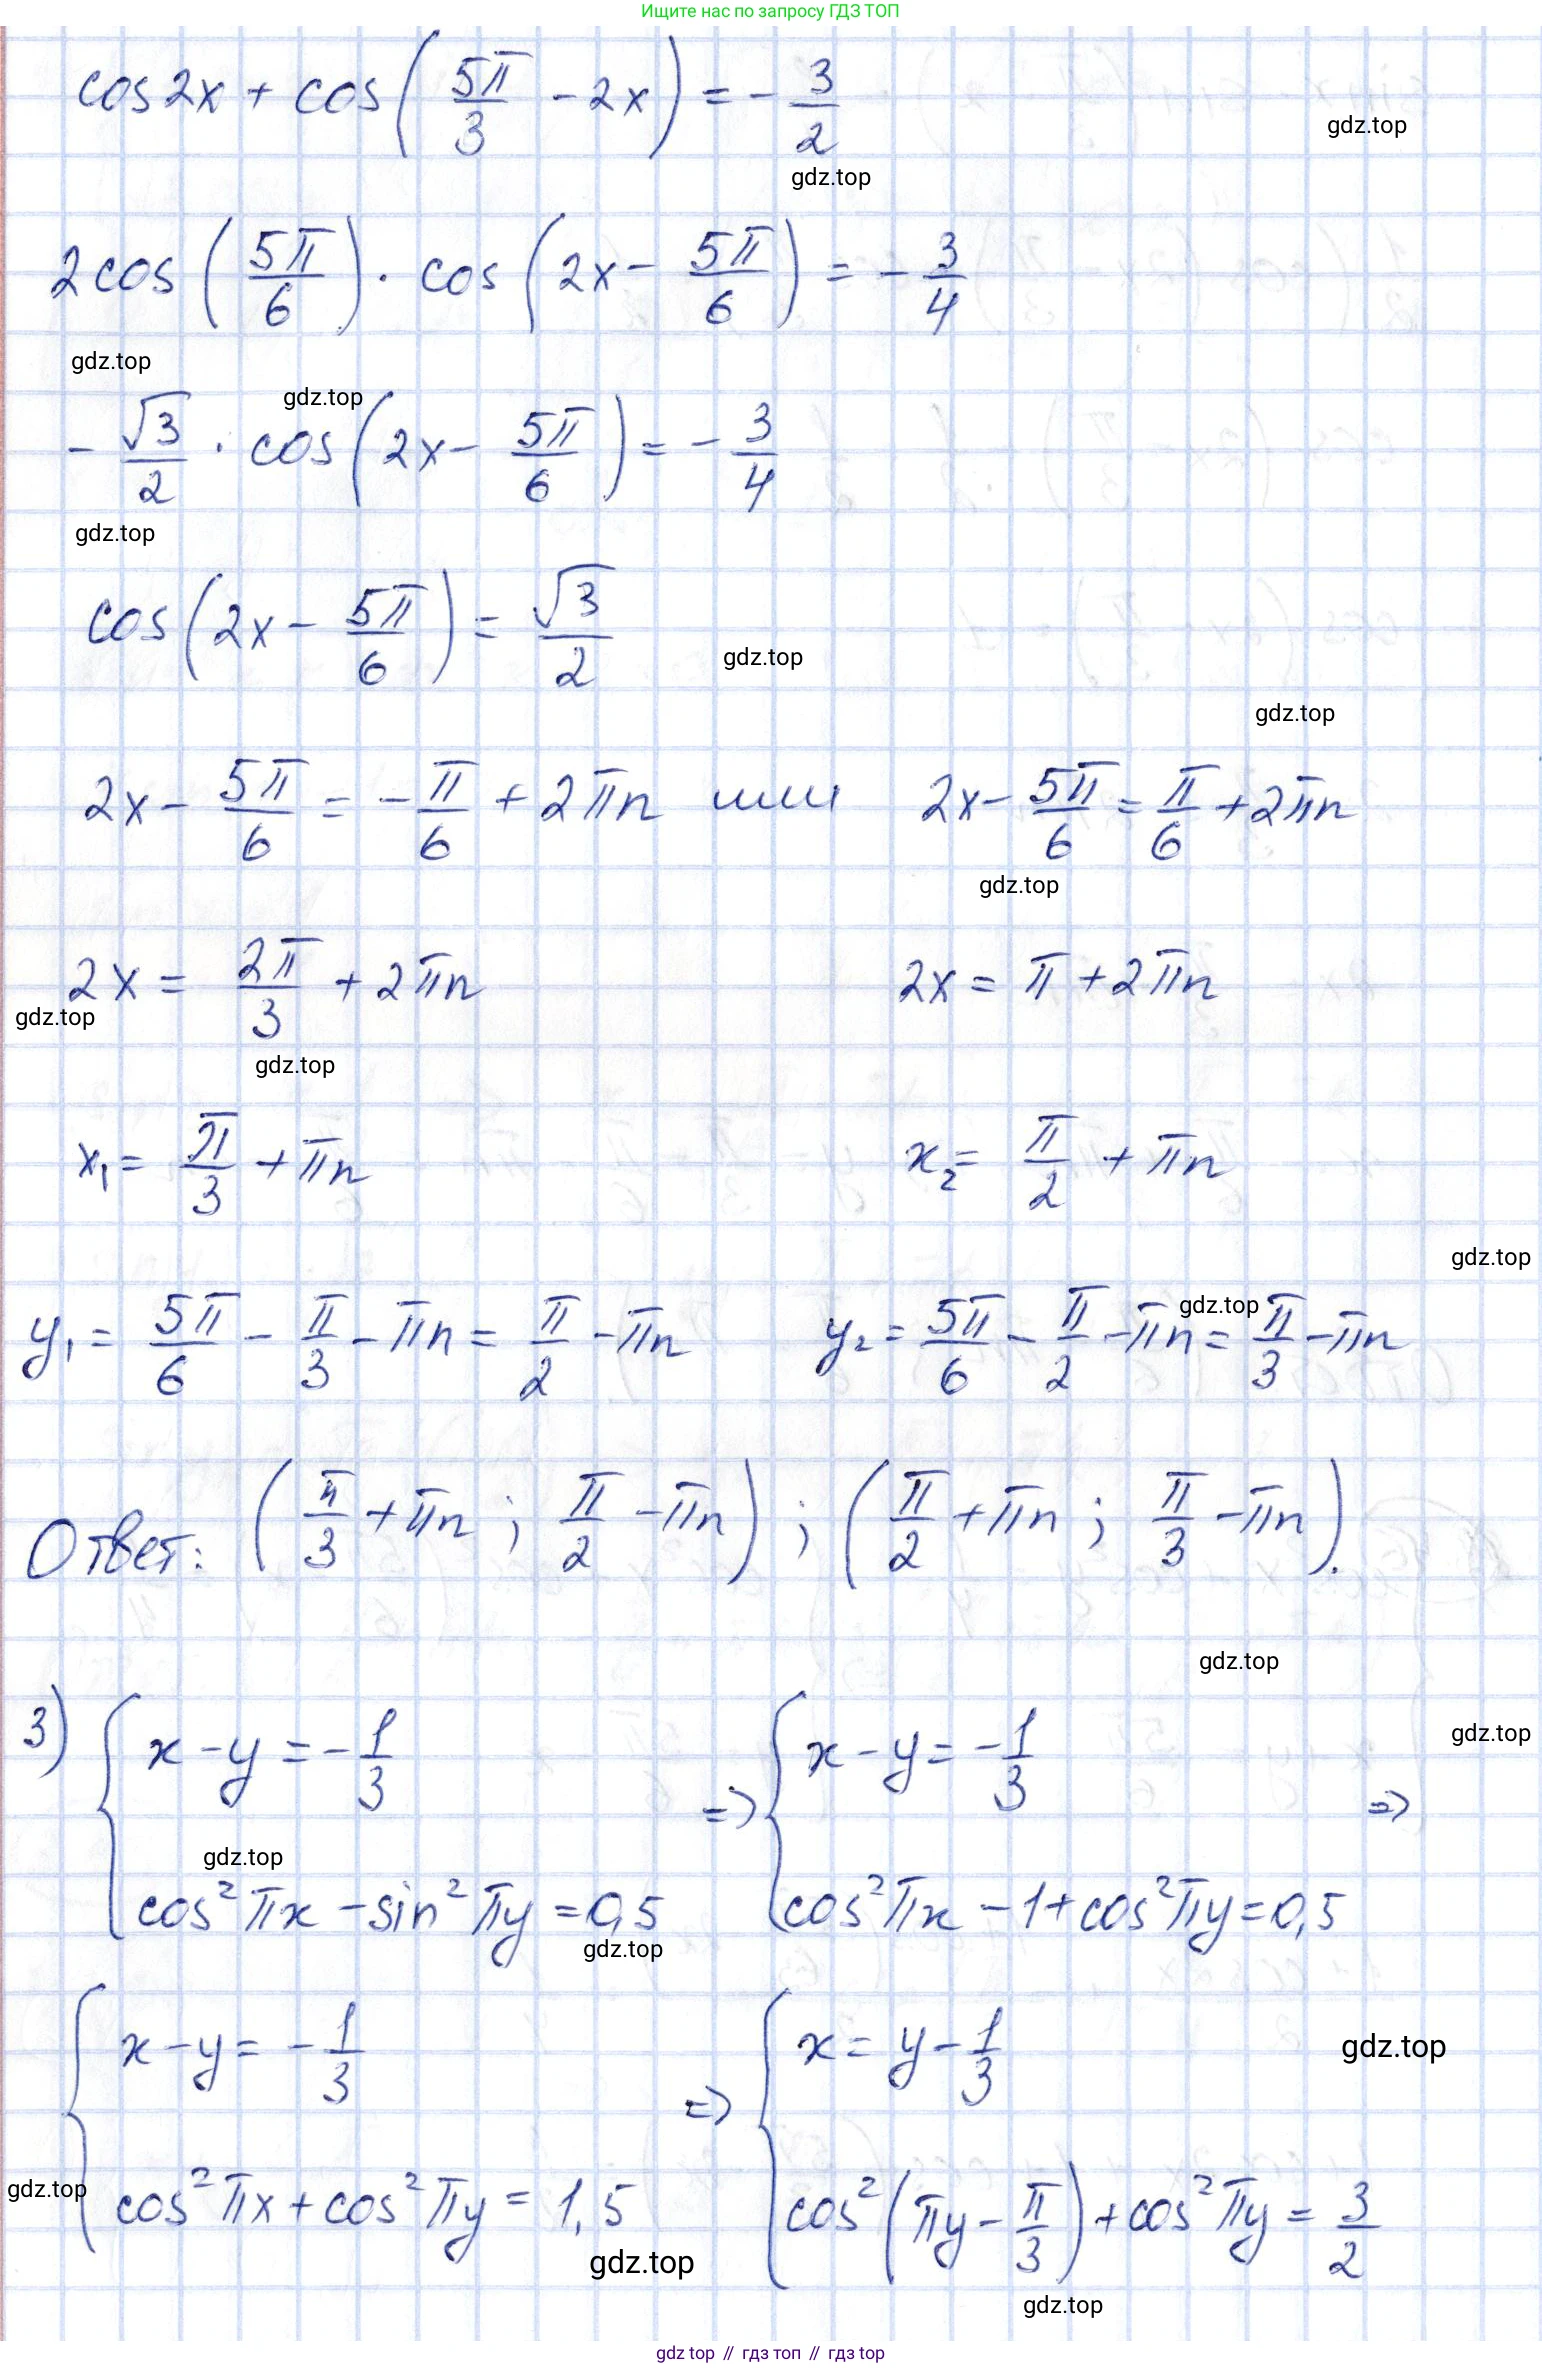 Ищите нас по запросу ГДЗ ТОП
cos 2x + cos(5π/3 - 2x) = - 3/2
gdz.top
gdz.top
2 cos(5π/6) · cos(2x - 5π/6) = - 3/4
gdz.top
gdz.top
- √3/2 · cos(2x - 5π/6) = - 3/4
gdz.top
cos(2x - 5π/6) = √3/2
gdz.top
gdz.top
2x - 5π/6 = - π/6 + 2πn или 2x - 5π/6 = π/6 + 2πn
gdz.top
2x = 2π/3 + 2πn 2x = π + 2πn
gdz.top
gdz.top
x₁ = π/3 + πn x₂ = π/2 + πn
gdz.top
gdz.top
y₁ = 5π/6 - π/3 - πn = π/2 - πn y₂ = 5π/6 - π/2 - πn = π/3 - πn
Ответ: (π/3 + πn ; π/2 - πn) ; (π/2 + πn ; π/3 - πn).
gdz.top
gdz.top
3) { x - y = - 1/3 => { x - y = - 1/3 =>
gdz.top
cos² πx - sin² πy = 0,5 cos² πx - 1 + cos² πy = 0,5
gdz.top
{ x - y = - 1/3 => { x = y - 1/3
gdz.top
gdz.top
cos² πx + cos² πy = 1,5 cos²(πy - π/3) + cos² πy = 3/2
gdz.top
gdz.top
gdz top // гдз топ // гдз top